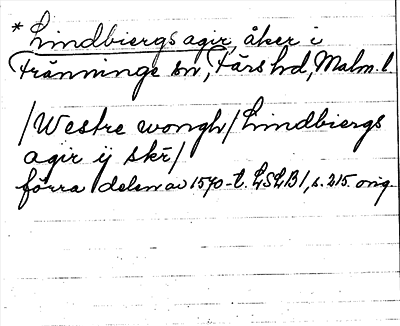 * Lindbiergs agir, åker i
Tränninge sn, Färs hd, Malm. l.
/Westre wongh/ Lindbiergs
agir ij skr̄/
förra delen av 1570-t. LSLB 1, s. 215. orig.